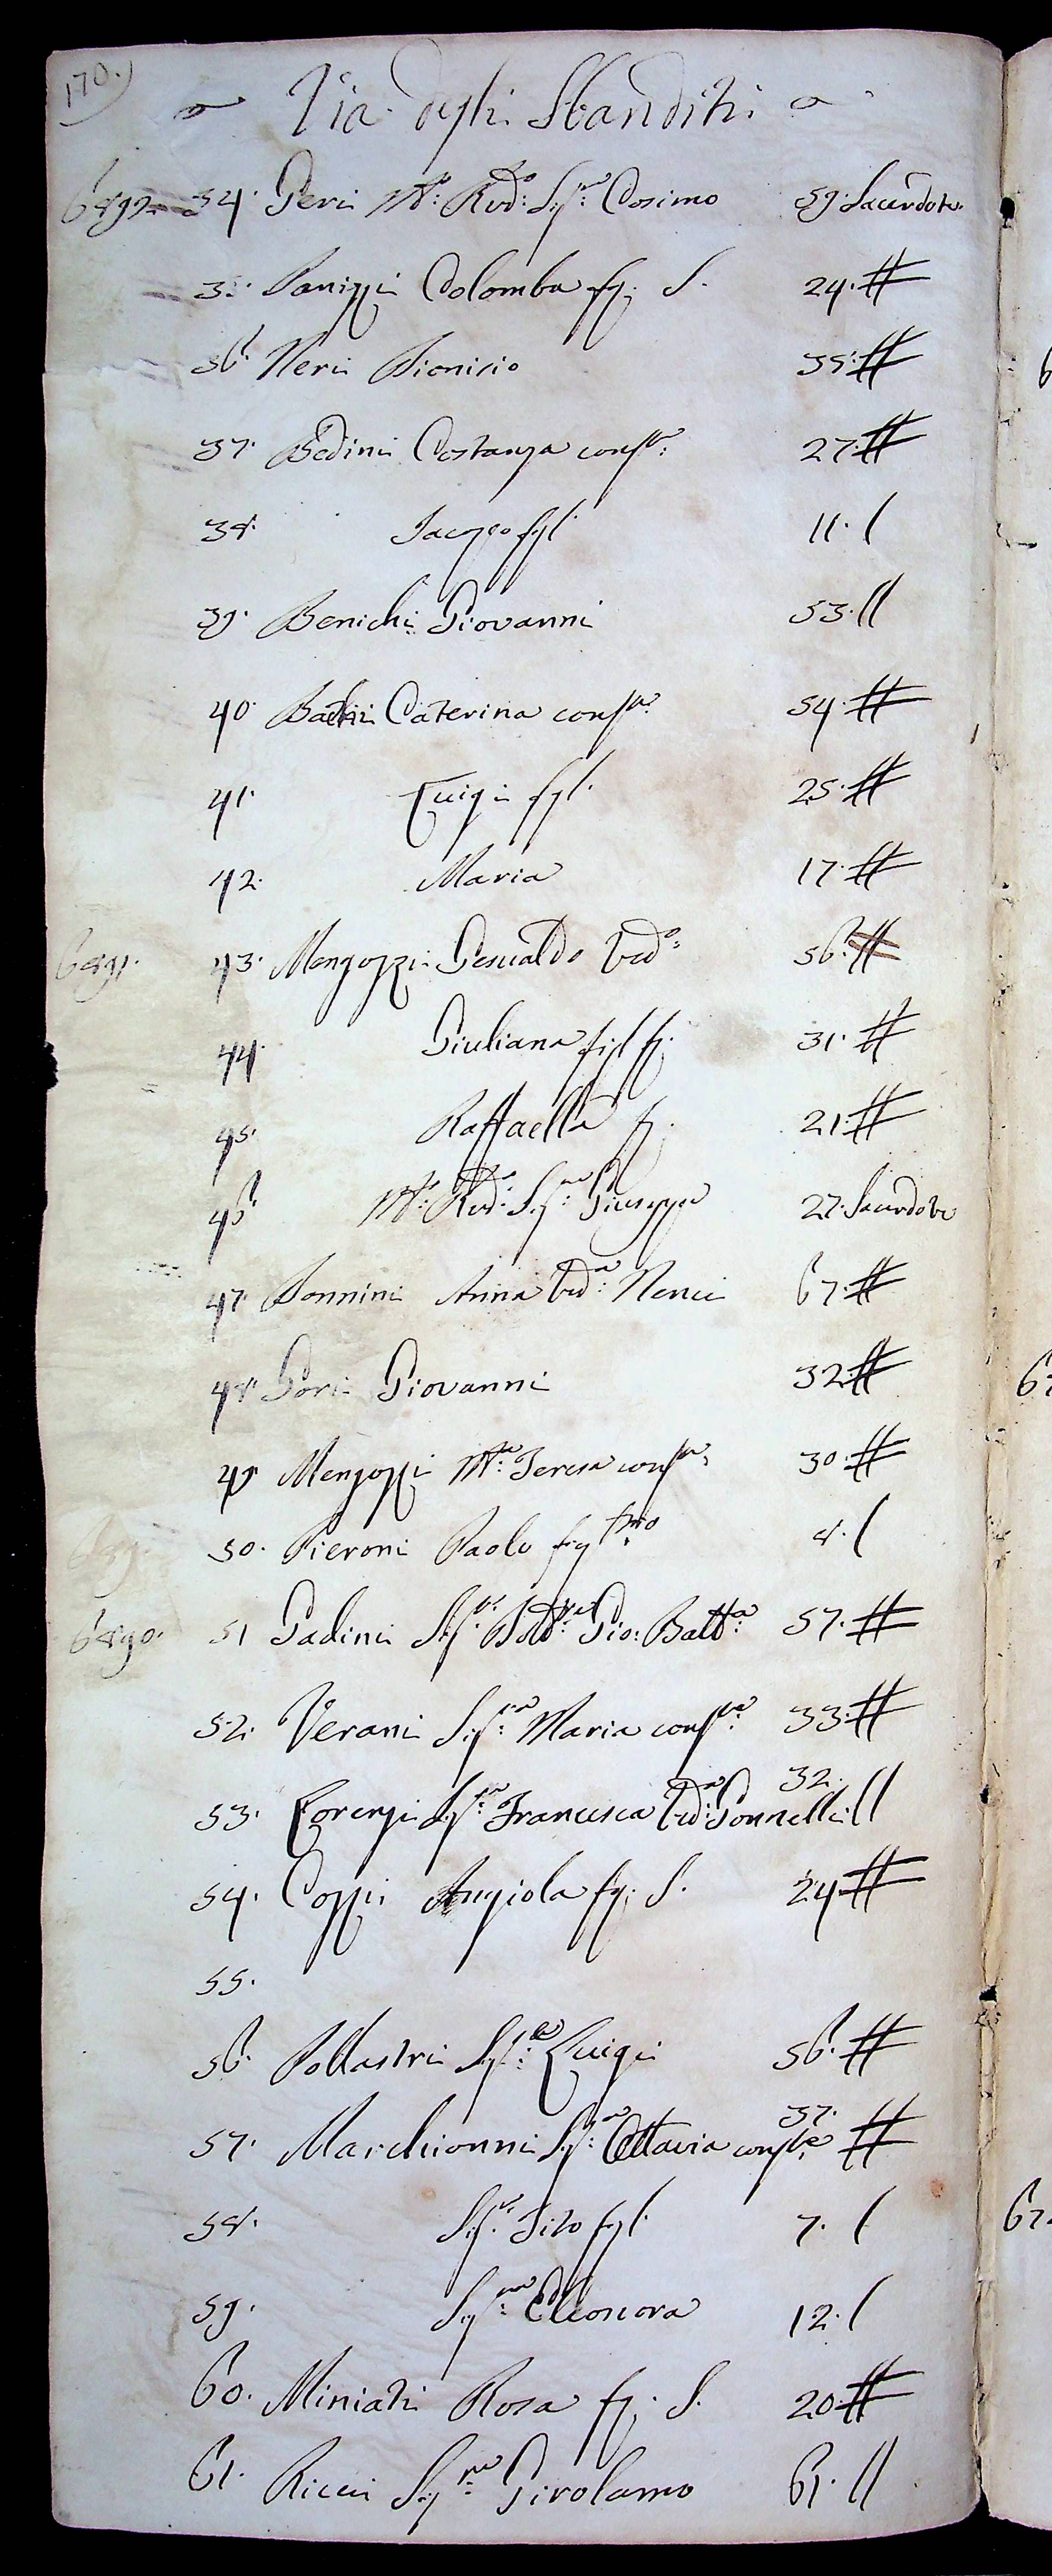 170.)
Via degli Sbanditi
6892. 34. Geri M:to Rvd:o Sig:re Cosimo 59. Sacerdote
35. Panizzi Colomba fg: S. 24. #
36. Neri Dionisio 35. #
37. Bedini Costanza cons:te 27. #
38. Jacopo figl. 11. /
39. Benichi Giovanni 53. //
40. Caterina cons:te 54. #
41. Luigi figl. 25. #
42. Maria 17. #
6891. 43. Mengozzi Gesualdo Ved:o 56. #
44. Giuliana figl fg: 31. #
45. Raffaella fg: 21. #
46. M:to Rvd:o Sig:re Giuseppe 27. Sacerdote
47. Anna Ved:a Nenci 67. #
48. Gori Giovanni 32. #
49. Mengozzi M:a Teresa cons:te 30. #
50. Pieroni Paolo fig 8. /
6890. 51 Gadini Sig:re Gio: Batt:a 57. #
52. Verani Sig:ra Maria cons:te 33. #
53. Lorenzi Sig:ra Francesca Ved:a Gonnelli 32. //
54. Cozzi Angiola fg: S. 24. #
55.
56. Pollastri Sig:re Luigi 56. #
57. Marchionni Sig:ra Ottavia cons:te 37. #
58. Sig:r Tito figl. 7. /
59. Sig:ra Eleonora 12. /
60. Miniati Rosa fg: S. 20. #
61. Ricci Sig:re Girolamo 61. //